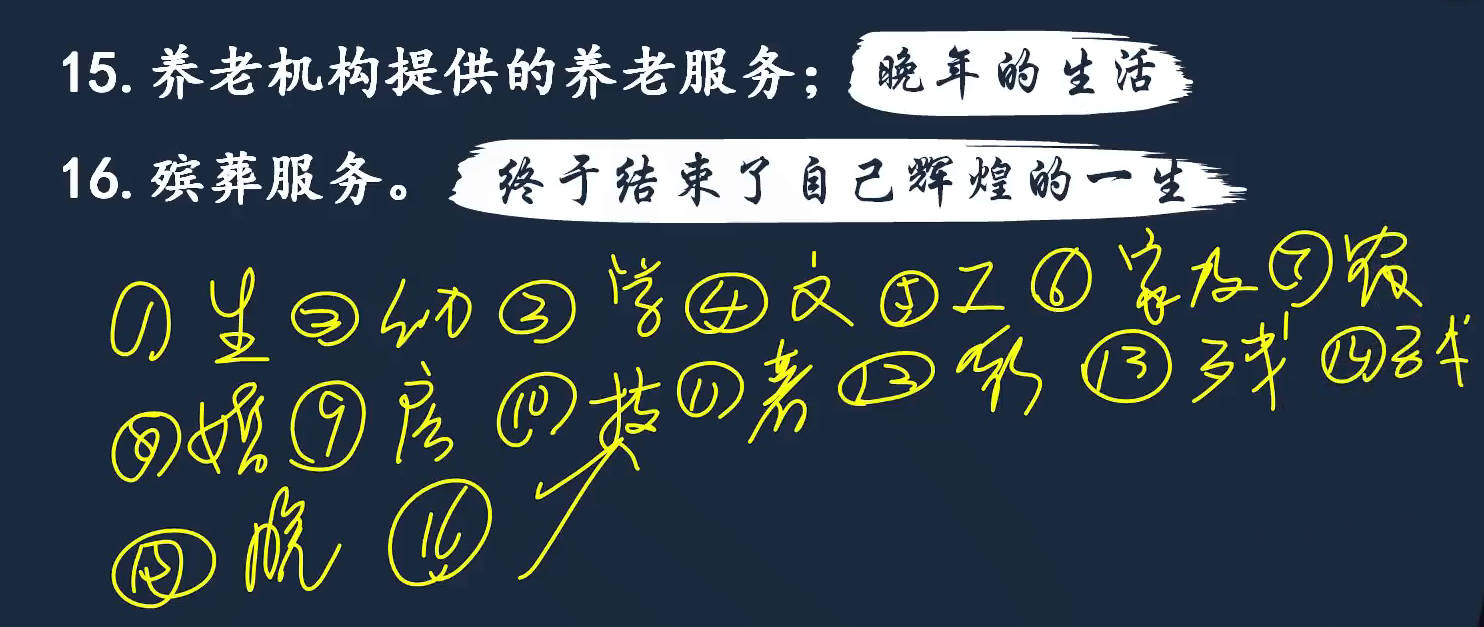 15.养老机构提供的养老服务；晚年的生活
16.殡葬服务。终于结束了自己辉煌的一生
①生②幼③学④文⑤工⑥家政⑦农
⑧婚⑨房⑩技⑪著⑫新⑬残⑭残
⑮晚⑯